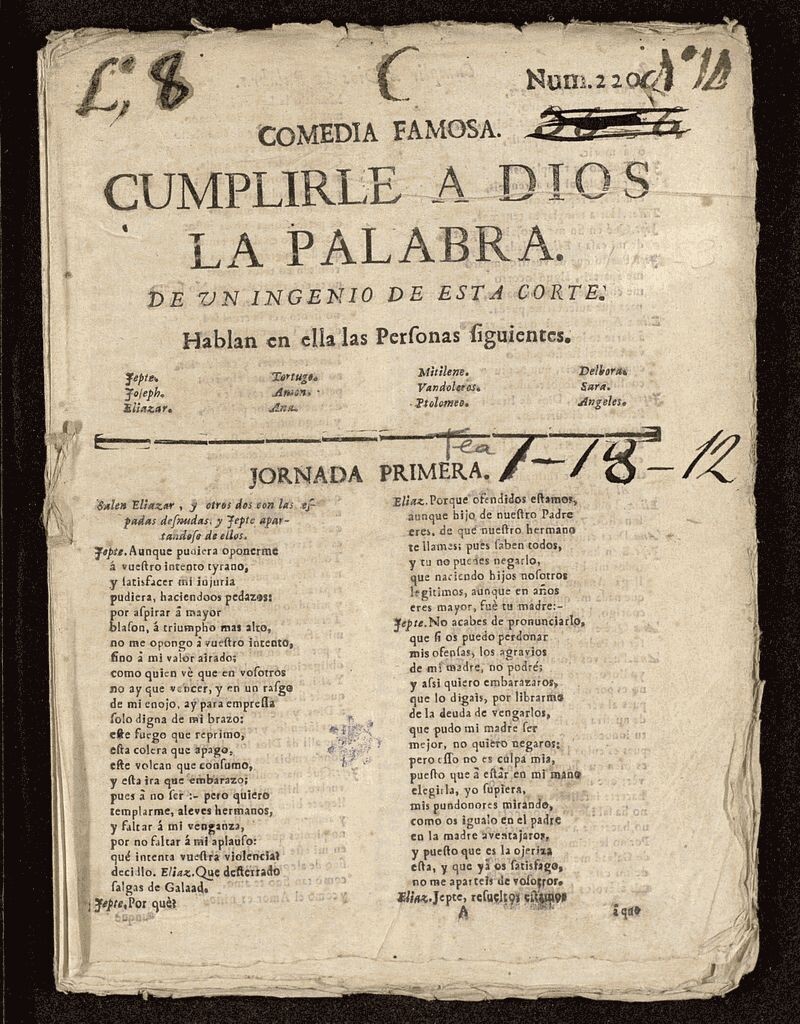 L, 8
C
Num. 220
COMEDIA FAMOSA.
CUMPLIRLE A DIOS
LA PALABRA.
DE UN INGENIO DE ESTA CORTE.
Hablan en ella las Perſonas ſiguientes.
Jepte. Tortugo. Mitilene. Delbora.
Joſeph. Amon. Vandoleros. Sara.
Eliazar. Ana. Ptolomeo. Angeles.
Tea 1-18-12
JORNADA PRIMERA.
Salen Eliazar, y otros dos con las eſ-
padas deſnudas, y Jepte apar-
tandoſe de ellos.
Jepte. Aunque pudiera oponerme
á vueſtro intento tyrano,
y ſatisfacer mi injuria
pudiera, haciendoos pedazos:
por aſpirar â mayor
blaſon, á triumpho mas alto,
no me opongo â vueſtro intento,
ſino â mi valor airado;
como quien vè que en voſotros
no ay que vencer, y en un raſgo
de mi enojo, ay para empreſſa
ſolo digna de mi brazo:
eſte fuego que reprimo,
eſta colera que apago,
eſte volcan que conſumo,
y eſta ira que embarazo;
pues â no ſer :- pero quiero
templarme, aleves hermanos,
y faltar á mi venganza,
por no faltar â mi aplauſo:
qué intenta vueſtra violencia?
decidlo. Eliaz. Que deſterrado
ſalgas de Galaad.
Jepte. Por què?
Eliaz. Porque ofendidos eſtamos,
aunque hijo de nueſtro Padre
eres, de que nueſtro hermano
te llames; pues ſaben todos,
y tu no puedes negarlo,
que naciendo hijos noſotros
legitimos, aunque en años
eres mayor, fuè tu madre:-
Jepte. No acabes de pronunciarlo,
que ſi os puedo perdonar
mis ofenſas, los agravios
de mi madre, no podré;
y aſsi quiero embarazaros,
que lo digais, por librarme
de la deuda de vengarlos,
que pudo mi madre ſer
mejor, no quiero negaros;
pero eſſo no es culpa mia,
pueſto que â eſtâr en mi mano
elegirla, yo ſupiera,
mis pundonores mirando,
como os igualo en el padre
en la madre aventajaros,
y pueſto que es la ojeriza
eſta, y que yâ os ſatisfago,
no me aparteis de voſotros.
Eliaz. Jepte, reſueltos eſtamos
A âque